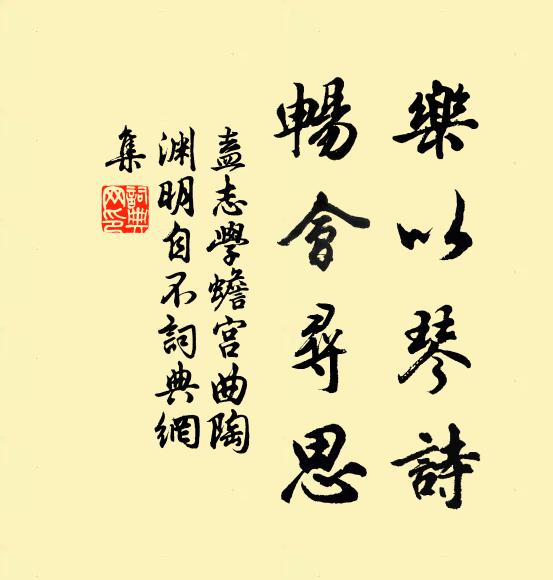 樂以琴詩
暢會尋思
盍志學蟾宮曲陶
渊明自不詞典網
集
詞典
网印